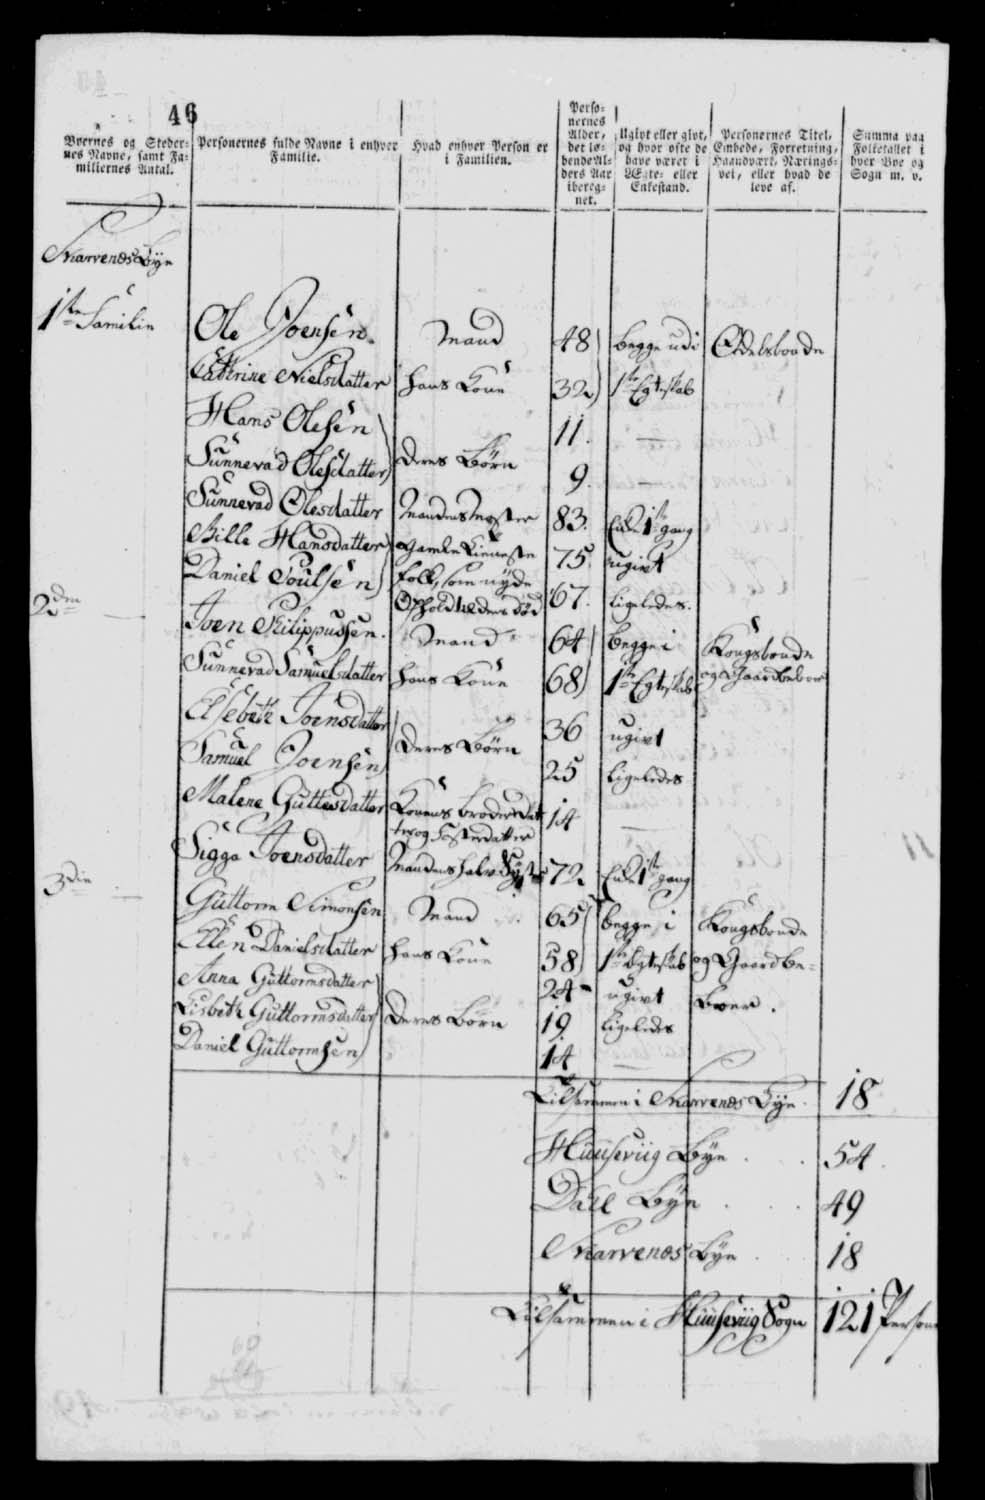 46
Byernes og Steder-
nes Navne, samt Fa-
miliernes Antal.
Personernes fulde Navne i enhver
Familie.
Hvad enhver Person er
i Familien.
Perso-
nernes
Alder,
det lø-
bende Al-
ders Aar
ibereg-
net.
Ugivt eller givt,
og hvor ofte de
have været i
Ægte- eller
Enkestand.
Personernes Titel,
Embede, Forretning,
Haandværk, Nærings-
vei, eller hvad de
leve af.
Summa paa
Folketallet i
hver Bye og
Sogn m. v.
Skarvenæs Bÿe
1ste Familie
Ole Joensen Mand 48 begge udi Odelsbonde
Cathrine Nielsdatter hans Kone 32 1ste Egteskab
Hans Olesen 11. —
Sunnevad Olesdatter deres Børn 9. —
Sunnevad Olesdatter Mandens Moster 83. Enke 1ste gang
Bille Hansdatter gamle Tieneste 75. ugivt
Daniel Poulsen folk, som nÿde 67. ligeledes.
Ophold til deres død
2den Joen Philippussen. Mand 64 begge i Kongsbonde
Sunnevad Samuelsdatter hans Kone 68 1ste Egteskab og Gaardbeboer
Elsebeth Joensdatter 36 ugivt
Samuel Joensen deres Børn 25 ligeledes
Malene Guttesdatter Konens broder Dat 14 —
ter og Søsterdatter
Sigga Joensdatter Mandens halv Sÿster 72 Enke 1ste gang
3die Guttorm Simonsen Mand 65 begge i Kongsbonde
Ellen Danielsdatter hans Kone 58 1ste Egteskab og Gaard be-
Anna Guttormsdatter 24 ugivt boer.
Lisbeth Guttormsdatter deres Børn 19 ligeledes
Daniel Guttormsen 14 —
Tilsammen i Skarvenæs Bÿe 18
Huusevig Bÿe . . 54.
Dall Bÿe . . . 49
Skarvenæs Bÿe . . 18
Tilsammen i Huusevig Sogn 121 Persone